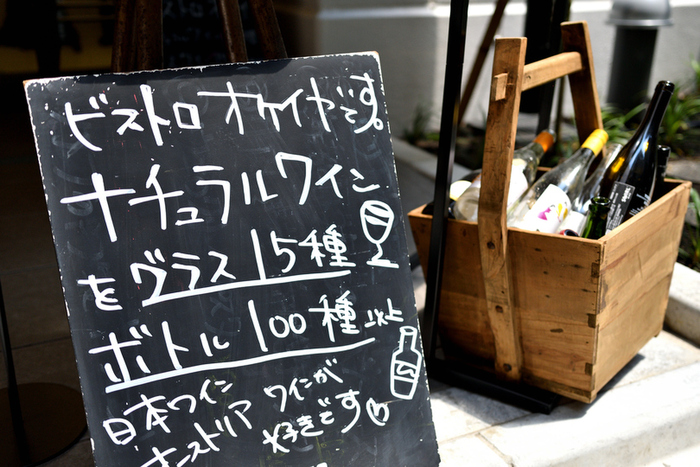 ビストロオケイヤです。
ナチュラルワイン
をグラス15種
ボトル100種以上
日本ワイン
オーストリア
ワインが
好きです